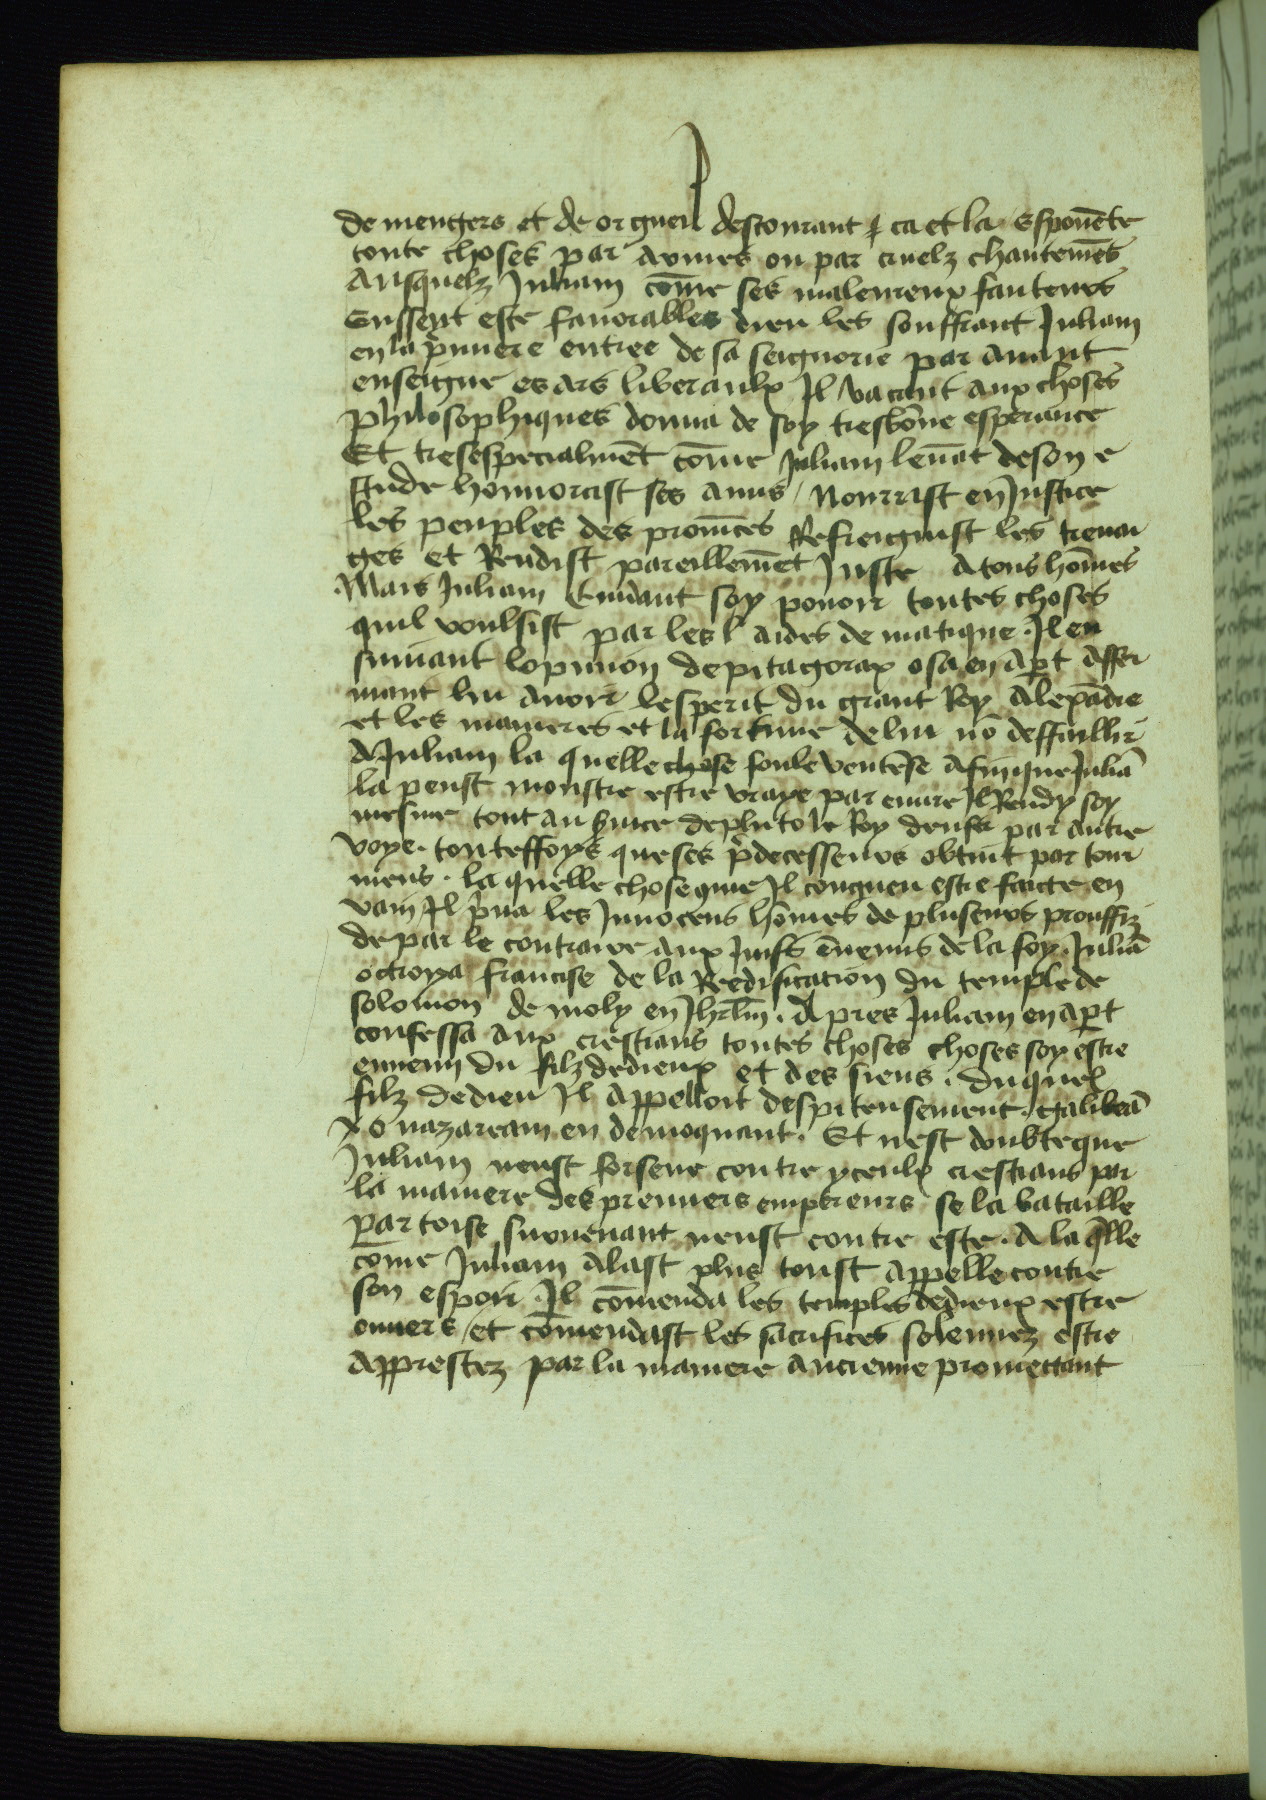 de mengers et de orgueil descourant ca et la Espouēte
toute choses par armes ou par cruelz chantemēs
Ausquelz Juliam cōme ses malemeux fauteurs
Eussent este fauorables dieu les souffrant Juliam
en la p̄miere entree de sa seignorie par auant
enseigne es ars liberaulx Il vacant aux choses
philosophiques donna de soy tresbōne esperance
Et tresespecialmēt cōme Juliam leuāt de son e
stude honnorast ses amis / Nourrist en Justice
les peuples des prouīces Refreignist les treuai
ges et Rendist pareillemēt Juste A tous hōmes
Mais Juliam Cuidant soy pouoir toutes choses
quil voulsist par les aides de matique . Il en
suiuant lopinion de pitagorax osa en ap̄t Affer
mant lui auoir lesperit du grant Roy Alexādre
et les manieres et la fortune de lui nō deffaillir
A Juliam la quelle chose Afin que Juliā
la peust monstre estre vraye par euure Il Rendy soy
mesme tout au s̄uice de pluto le Roy denfer par autre
voye . touteffoys que ses p̄decesseurs obtint par tour
mens . la quelle chose que Il congneu estre faicte en
vain Il p̄ua les Innocens hōmes de pluseurs prouffiz
de par le contraire aux Juifs ēnemis de la foy . Juliā
octroya francise de la Reedificacion du temple de
solomon de moly en Jhrlm̄ . Apres Juliam en ap̄t
confessa aux crestians toutes choses choses soy estre
ennemi du filz de dieux et des siens . duquel
filz de dieu Il Appelloit despiteusement . galileā
nazaream en de moquant . Et nest doubte que
Juliam neust forsene contre yceulx crestians par
la maniere des premiers empereurs se la bataille
partoise suruenant neust contre este . A la q̄lle
cōme Juliam Alast plus toust Appelle contre
son espoir . Il cōmenda les temples de dieux estre
ouuers / et cōmendast les sacrifices solennez estre
Apprestez par la maniere Ancienne promettant